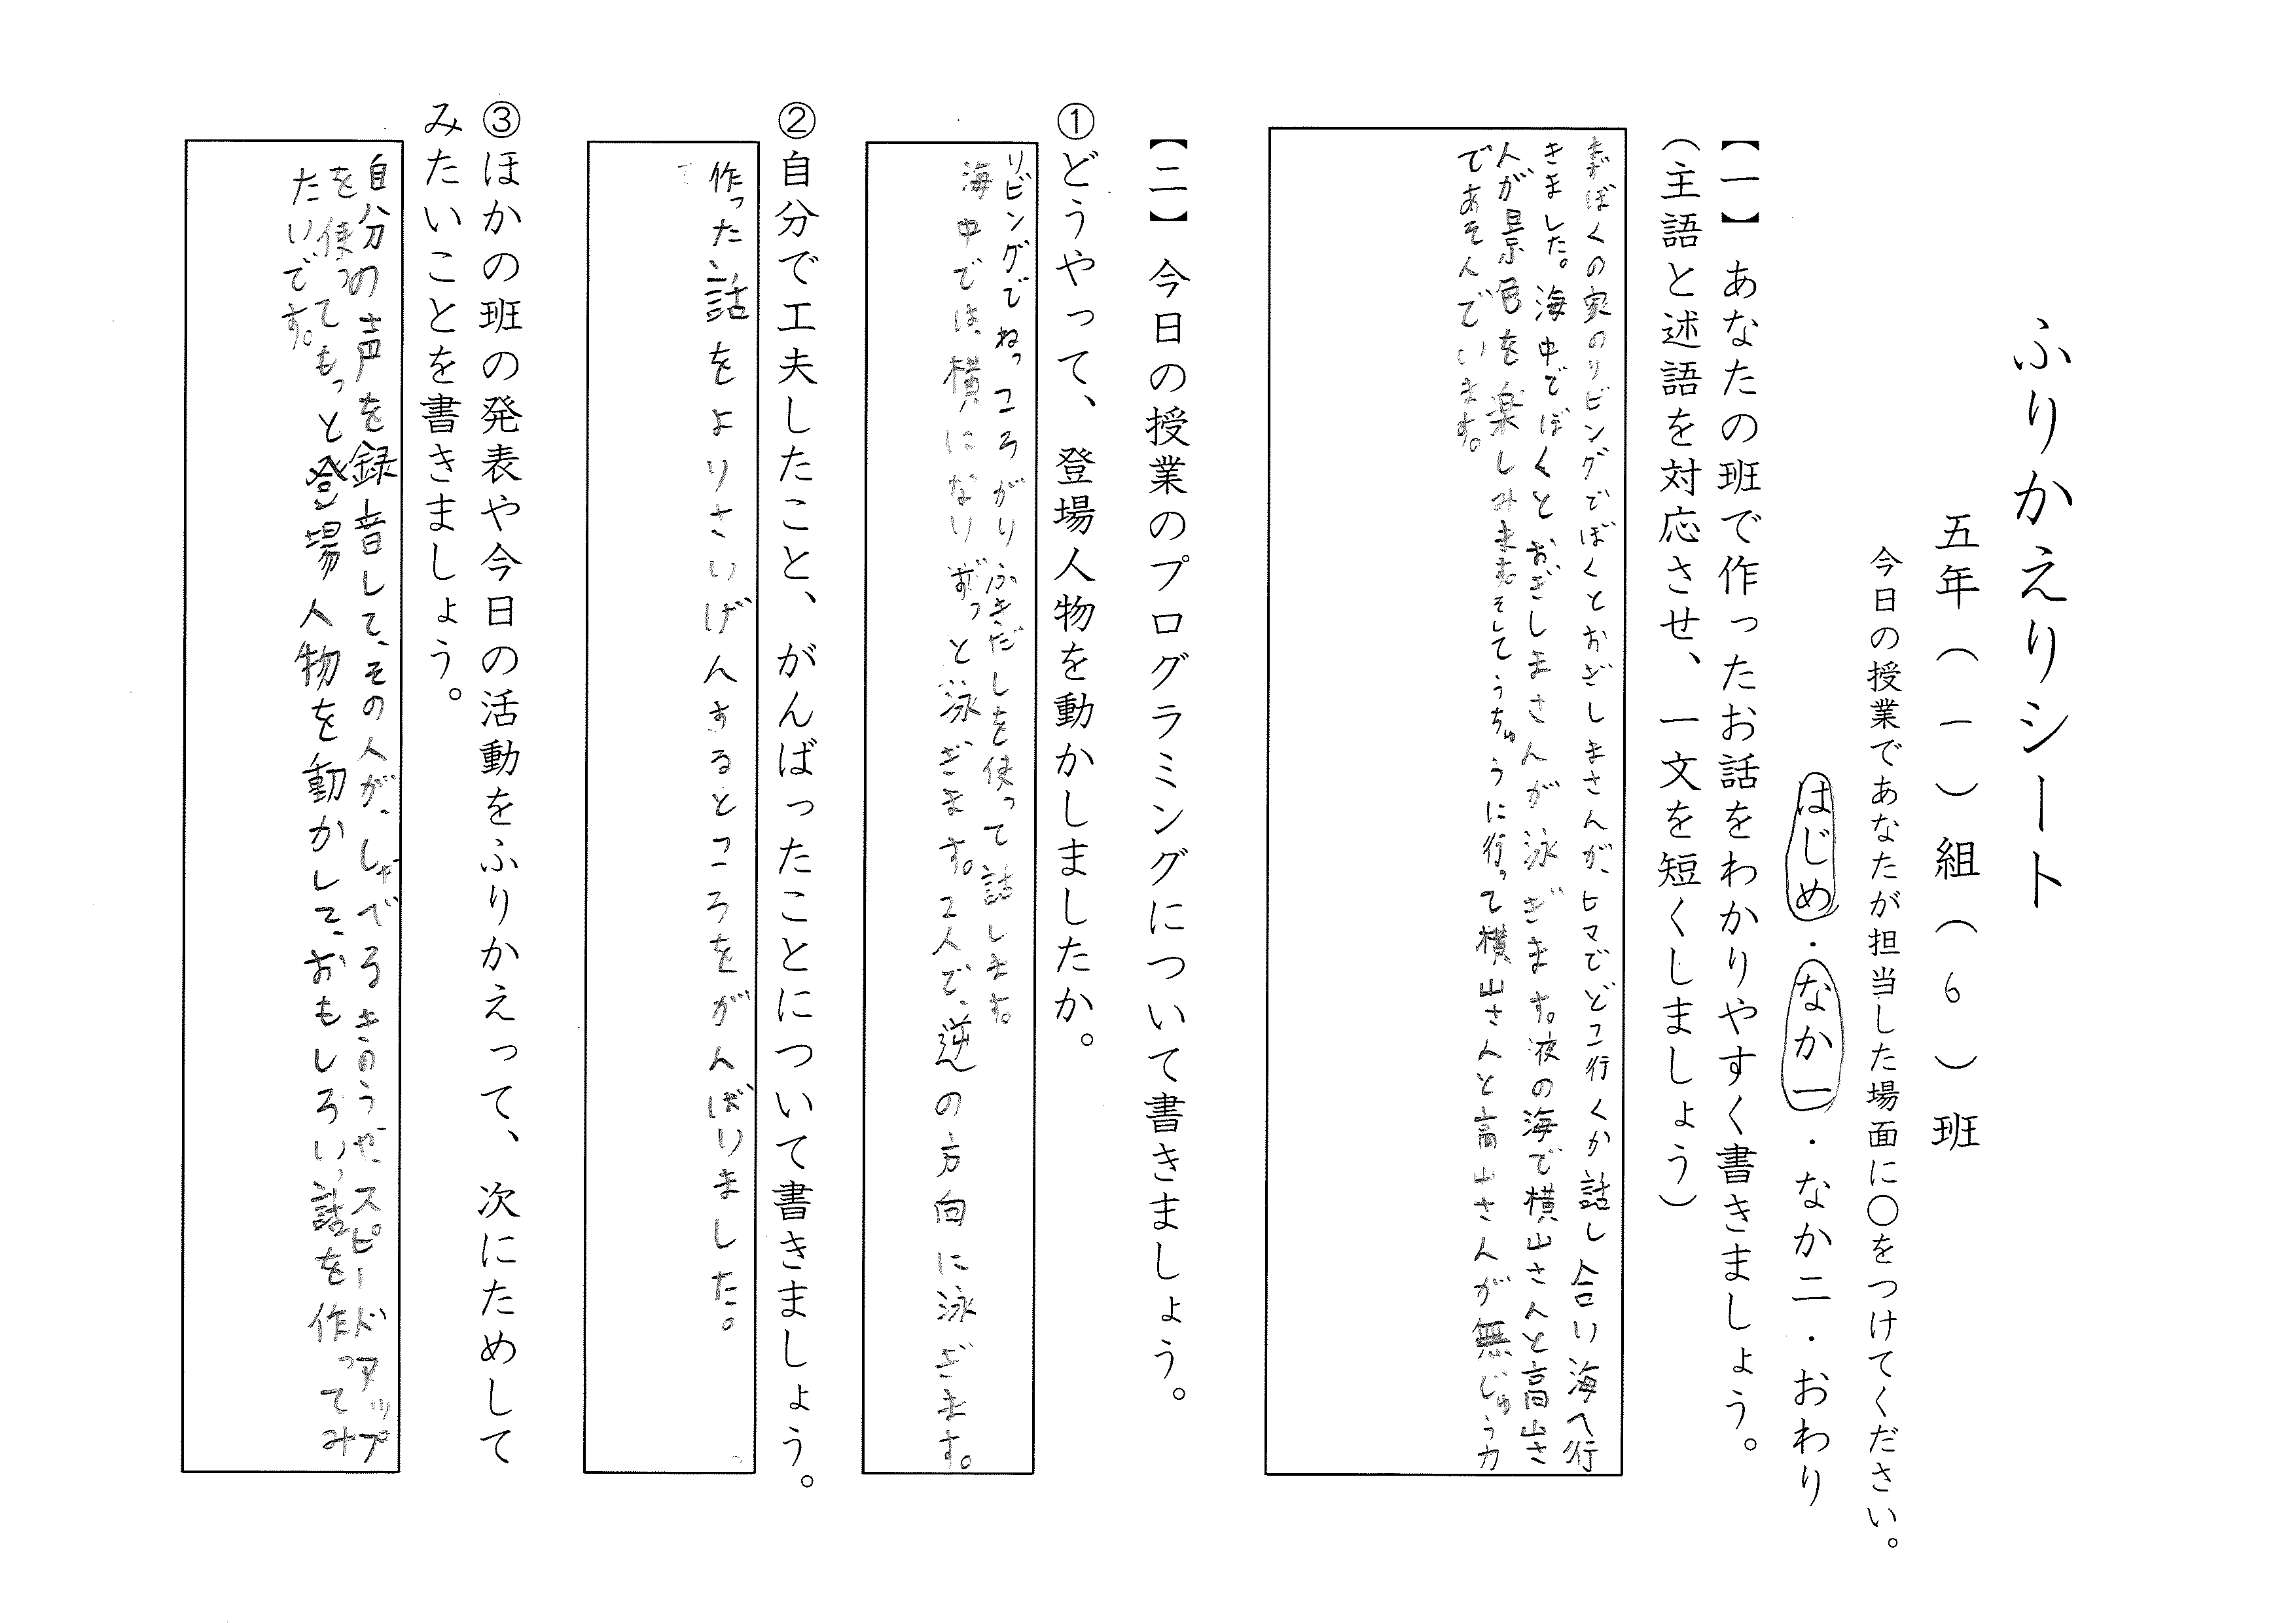 ふりかえりシート
五年（一）組（6）班
今日の授業であなたが担当した場面に〇をつけてください。
はじめ・なか一・なか二・おわり
【一】あなたの班で作ったお話をわかりやすく書きましょう。
（主語と述語を対応させ、一文を短くしましょう）
まずぼくの家のリビングでぼくとおぎしまさんが、ヒマでどこ行くか話し合い海へ行
きました。海中でぼくとおぎしまさんが泳ぎます。夜の海で横山さんと高山さ
人が景色を楽しみます。そしてうちゅうに行って横山さんと高山さんが無じゅう力
であそんでいます。
【二】今日の授業のプログラミングについて書きましょう。
①どうやって、登場人物を動かしましたか。
リビングでねっころがりふきだしを使って話します。
海中では、横になりずっと泳ぎます。2人で、逆の方向に泳ぎます。
②自分で工夫したこと、がんばったことについて書きましょう。
作った話をよりさいげんするところをがんばりました。
③ほかの班の発表や今日の活動をふりかえって、次にためして
みたいことを書きましょう。
自分の声を録音して、その人が、しゃべるきのうやスピードアップ
を使ってもっと登場人物を動かして、おもしろい話を作ってみ
たいです。